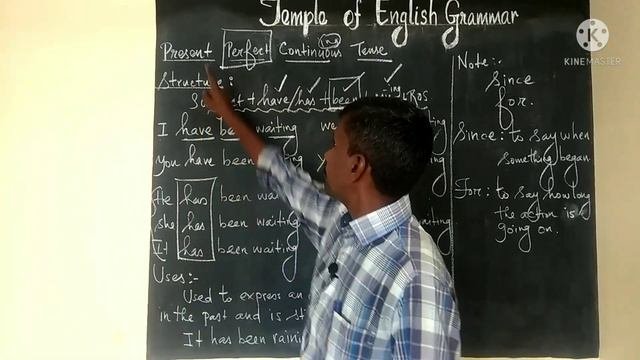 Temple of English Grammar
Present Perfect Continuous Tense
(ing)
Structure:
+ have/has + been + ing + ROS
I have been waiting we
You have been waiting
He has been waiting
She has been waiting waiting
It has been waiting
Uses:-
Used to express an
in the past and is
It has been raining
Note:-
Since
for.
Since: to say when
something began
For: to say how long
the action is
going on.
Made with
KINEMASTER